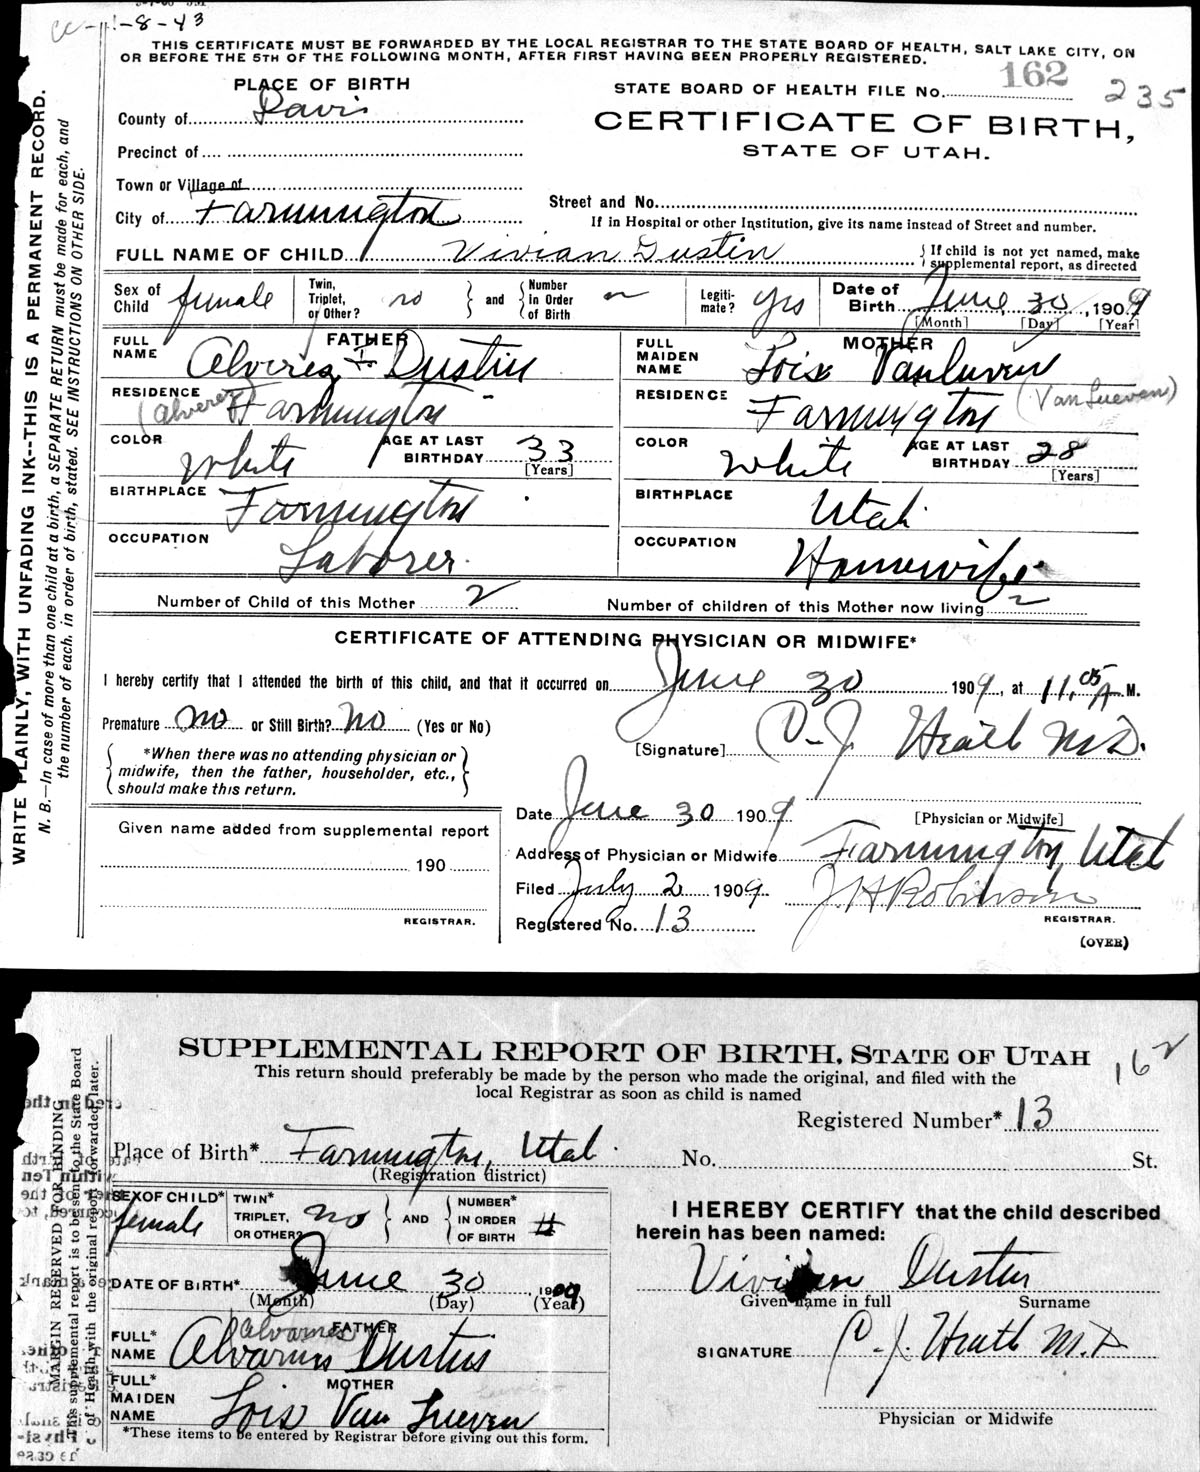 -8-43
THIS CERTIFICATE MUST BE FORWARDED BY THE LOCAL REGISTRAR TO THE STATE BOARD OF HEALTH, SALT LAKE CITY, ON
OR BEFORE THE 5TH OF THE FOLLOWING MONTH, AFTER FIRST HAVING BEEN PROPERLY REGISTERED.
WRITE PLAINLY, WITH UNFADING INK--THIS IS A PERMANENT RECORD.
N. B.—In case of more than one child at a birth, a SEPARATE RETURN must be made for each, and
the number of each, in order of birth, stated. SEE INSTRUCTIONS ON OTHER SIDE.
PLACE OF BIRTH
County of Davis
Precinct of
Town or Village of
City of Farmington
STATE BOARD OF HEALTH FILE No. 162 235
CERTIFICATE OF BIRTH,
STATE OF UTAH.
Street and No.
If in Hospital or other Institution, give its name instead of Street and number.
FULL NAME OF CHILD Vivian Dustin { If child is not yet named, make
supplemental report, as directed
Sex of Child female
Twin, Triplet, or Other? no } and { Number in Order of Birth
Legiti-mate? yes
Date of Birth June 30, 1909
[Month] [Day] [Year]
FATHER
FULL NAME Alverez F Dustin
RESIDENCE (Alverez) Farmington
COLOR White AGE AT LAST BIRTHDAY 33 [Years]
BIRTHPLACE Farmington
OCCUPATION Laborer.
MOTHER
FULL MAIDEN NAME Lois VanLuven
RESIDENCE Farmington (Van Lueven)
COLOR White AGE AT LAST BIRTHDAY 28 [Years]
BIRTHPLACE Utah
OCCUPATION Housewife
Number of Child of this Mother 2 Number of children of this Mother now living 2
CERTIFICATE OF ATTENDING PHYSICIAN OR MIDWIFE*
I hereby certify that I attended the birth of this child, and that it occurred on June 30 1909, at 11.05 A M.
Premature no or Still Birth? No (Yes or No)
{ *When there was no attending physician or
midwife, then the father, householder, etc.,
should make this return. }
[Signature] C. J. Heath M.D.
[Physician or Midwife]
Date June 30 1909
Address of Physician or Midwife Farmington, Utah
Filed July 2 1909 J H Robinson
REGISTRAR.
Registered No. 13
(OVER)
Given name added from supplemental report
190
REGISTRAR.
SUPPLEMENTAL REPORT OF BIRTH, STATE OF UTAH 162
This return should preferably be made by the person who made the original, and filed with the
local Registrar as soon as child is named
Registered Number* 13
Place of Birth* Farmington, Utah. No. St.
(Registration district)
MARGIN RESERVED FOR BINDING
This supplemental report is to be sent to the State Board
of Health with the original report forwarded later.
SEX OF CHILD* female
TWIN* TRIPLET, OR OTHER? no } AND { NUMBER* IN ORDER OF BIRTH
DATE OF BIRTH* June 30, 1909
(Month) (Day) (Year)
FATHER
FULL* NAME Alvarus Dustin
MOTHER
FULL* MAIDEN NAME Lois Van Lueven
*These items to be entered by Registrar before giving out this form.
I HEREBY CERTIFY that the child described
herein has been named:
Vivian Dustin
Given name in full Surname
SIGNATURE C. J. Heath M.D
Physician or Midwife